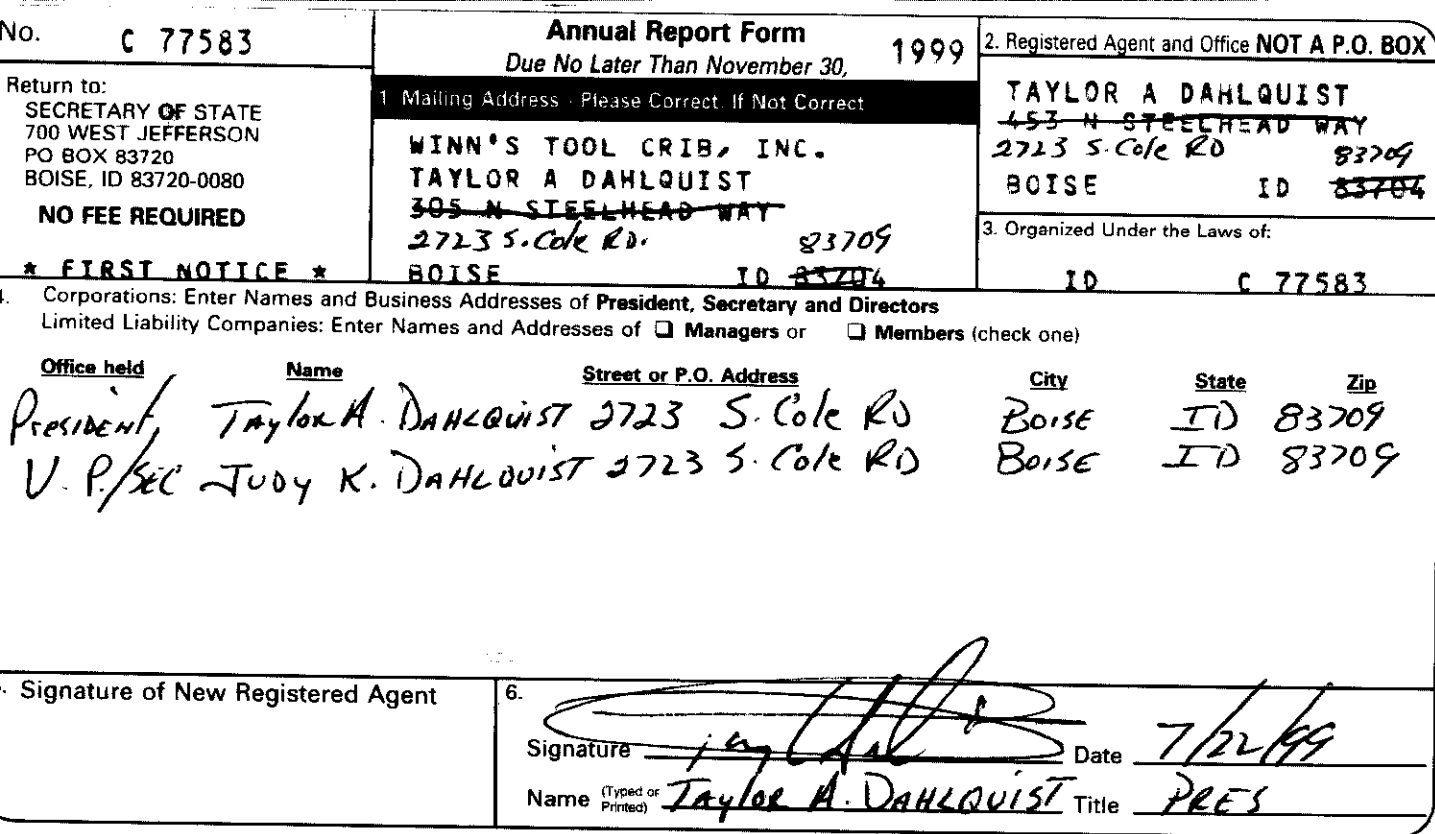 No. C 77583
Return to:
SECRETARY OF STATE
700 WEST JEFFERSON
PO BOX 83720
BOISE, ID 83720-0080
NO FEE REQUIRED
* FIRST NOTICE *
Annual Report Form 1999
Due No Later Than November 30,
1 Mailing Address - Please Correct If Not Correct
WINN'S TOOL CRIB, INC.
TAYLOR A DAHLQUIST
305 N STEELHEAD WAY
2723 S. Cole RD. 83709
BOISE ID 83704
2. Registered Agent and Office NOT A P.O. BOX
TAYLOR A DAHLQUIST
453 N STEELHEAD WAY
2723 S. Cole RD 83709
BOISE ID 83704
3. Organized Under the Laws of:
ID C 77583
4. Corporations: Enter Names and Business Addresses of President, Secretary and Directors
Limited Liability Companies: Enter Names and Addresses of ☐ Managers or ☐ Members (check one)
Office held Name Street or P.O. Address City State Zip
President, Taylor A. DAHLQUIST 2723 S. Cole RD BOISE ID 83709
V.P./SEC JUDY K. DAHLQUIST 2723 S. Cole RD BOISE ID 83709
Signature of New Registered Agent
6.
Signature Date 7/22/99
Name (Typed or Printed) Taylor A. DAHLQUIST Title PRES